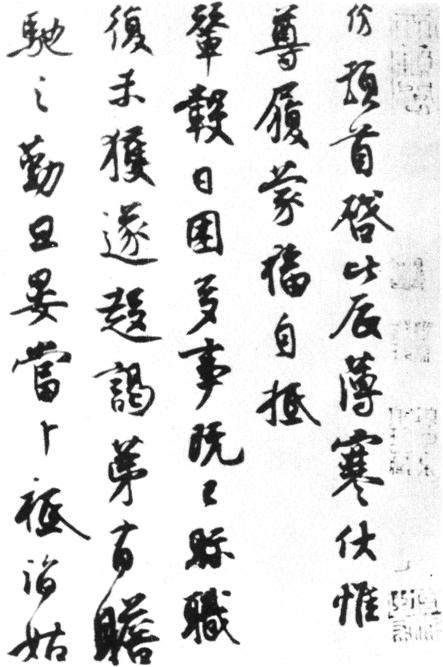 份頓首啓比辰薄寒伏惟
尊履蒙福自抵
輦轂日困多事既已縣職
復未獲遂趨謁第有瞻
馳之勤旦晏當卜祗詣姑